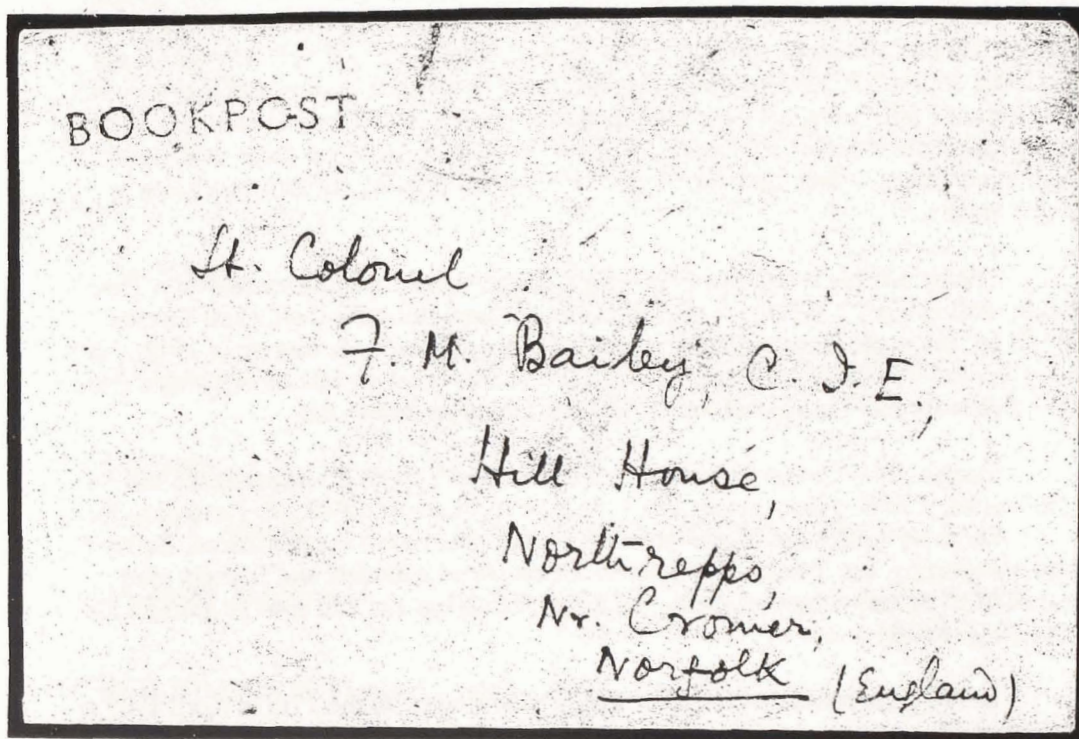 BOOKPOST
Lt. Colonel
F. M. Bailey, C. I. E.,
Hill House,
Northrepps,
Nr. Cromer,
Norfolk (England)